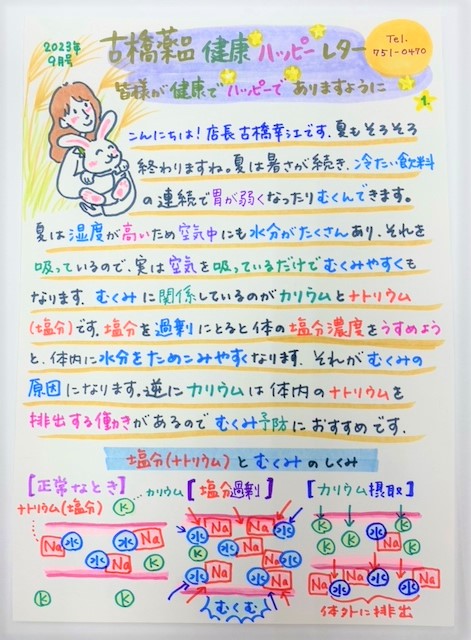 2023年
9月号
古橋薬品 健康 ハッピー レター
Tel.
751-0470
皆様が健康でハッピーでありますように
1.
こんにちは！店長古橋幸江です。夏もそろそろ
終わりますね。夏は暑さが続き、冷たい飲料
の連続で胃が弱くなったりむくんできます。
夏は湿度が高いため空気中にも水分がたくさんあり、それを
吸っているので、実は空気を吸っているだけでむくみやすくも
なります。むくみに関係しているのがカリウムとナトリウム
(塩分)です。塩分を過剰にとると体の塩分濃度をうすめよう
と、体内に水分をためこみやすくなります。それがむくみの
原因になります。逆にカリウムは体内のナトリウムを
排出する働きがあるのでむくみ予防におすすめです。
塩分(ナトリウム)とむくみのしくみ
[正常なとき]
カリウム
K
ナトリウム(塩分)
Na 水 水 Na
Na 水 K
K K
[塩分過剰]
水 Na Na 水
K 水 Na K
Na 水 水 Na
むくむ
[カリウム摂取]
K K 水 K
K K Na K
水 水 水
Na Na Na
体外に排出